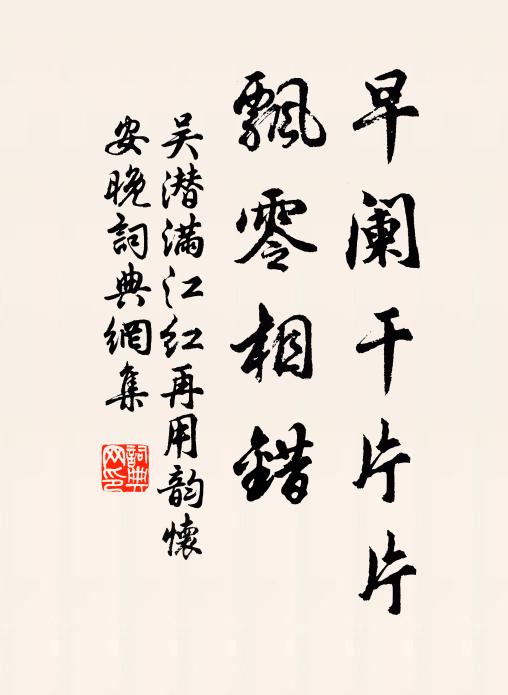 早阑干片片
飘零相错
吴潜满江红再用韵怀
安晚词典網集
詞典網印